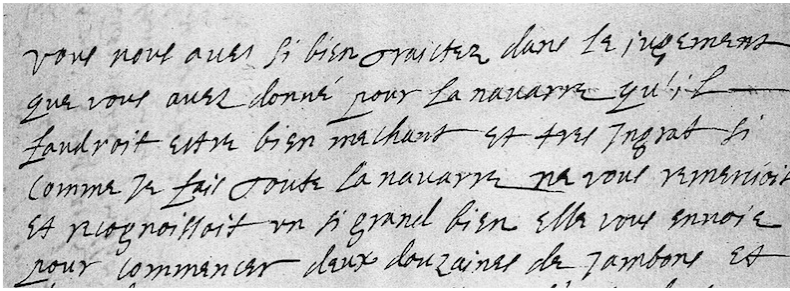 vous nous aues si bien traictez dans le jugement
que vous auez donné pour la nauarre qu'il
faudroit estre bien mechant et tres Ingrat si
comme Je fais toute la nauarre ne vous remercioit
et recognoissoit un si grand bien elle vous enuoie
pour commencer deux douzaines de Jambons et